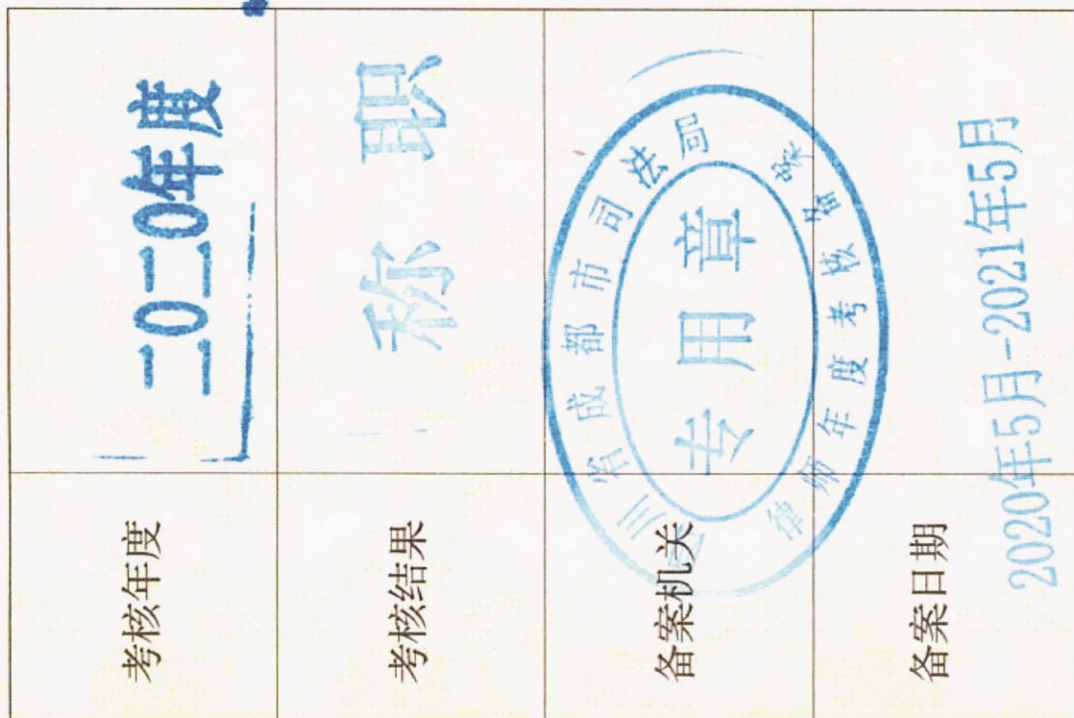 考核年度 二〇二〇年度
考核结果 称职
备案机关 四川省成都市司法局
专用章
律师年度考核备案
备案日期 2020年5月-2021年5月